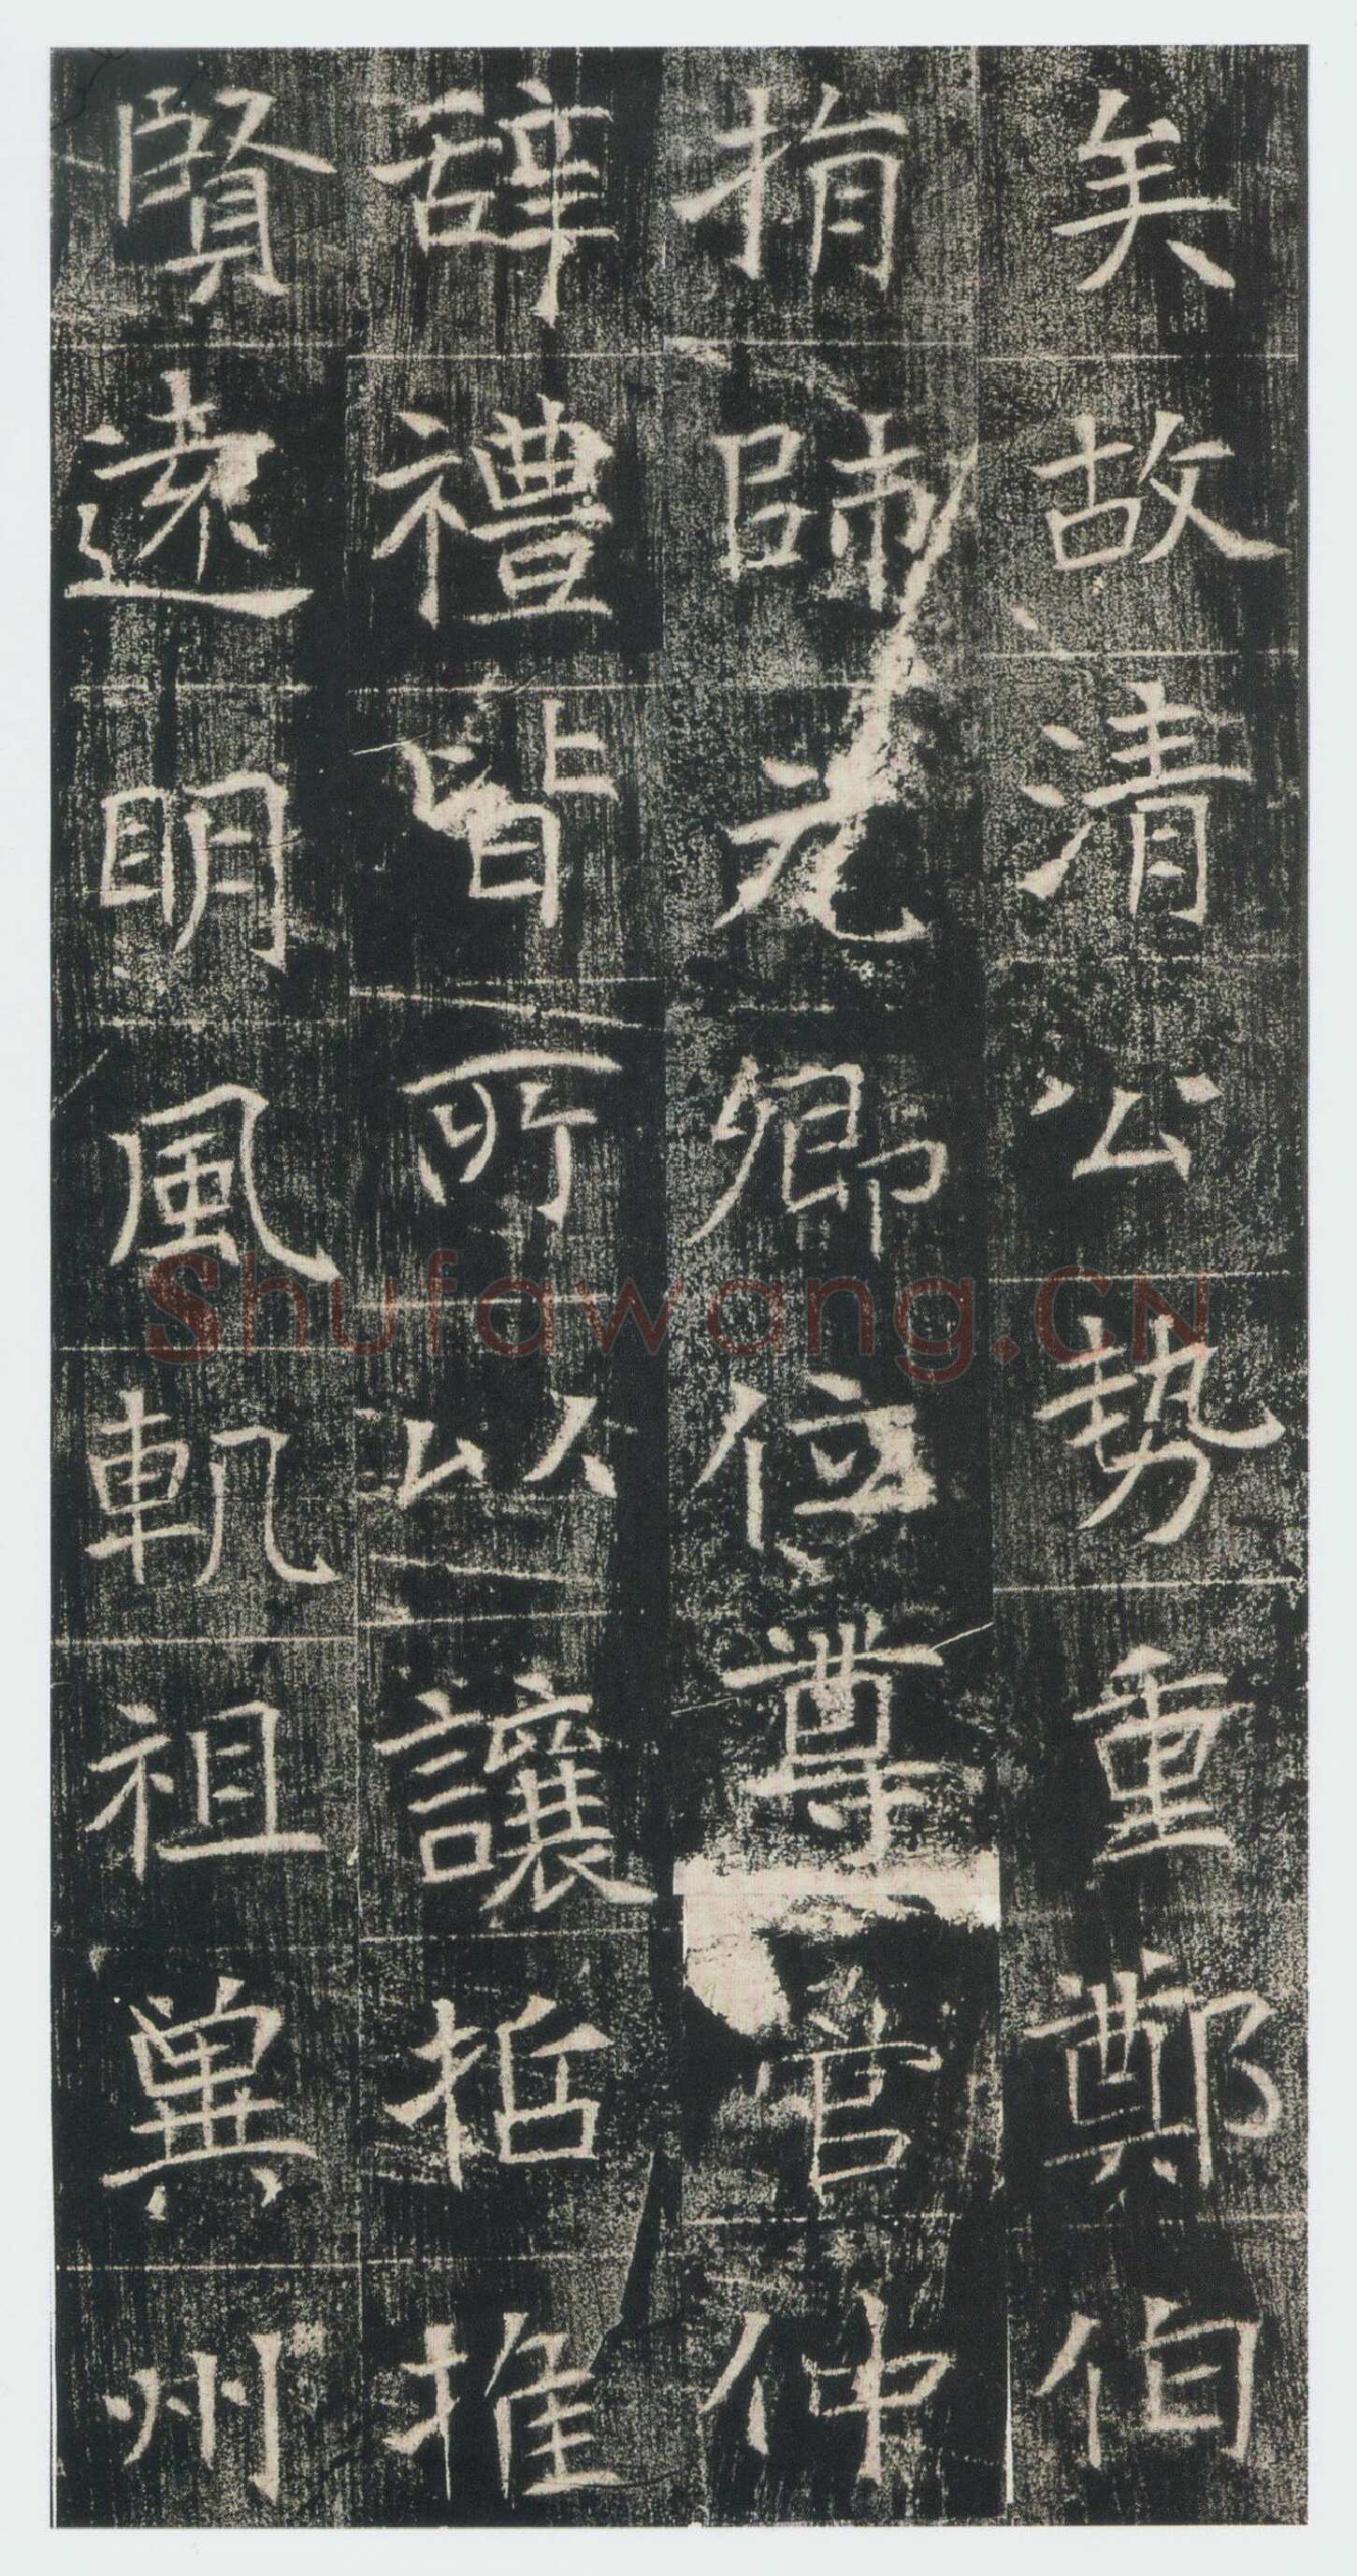 矣故清公勢重鄭伯
捐師元卿位尊管仲
辭禮皆所以讓哲推
賢遠明風軌祖冀州
Shufawang.CN